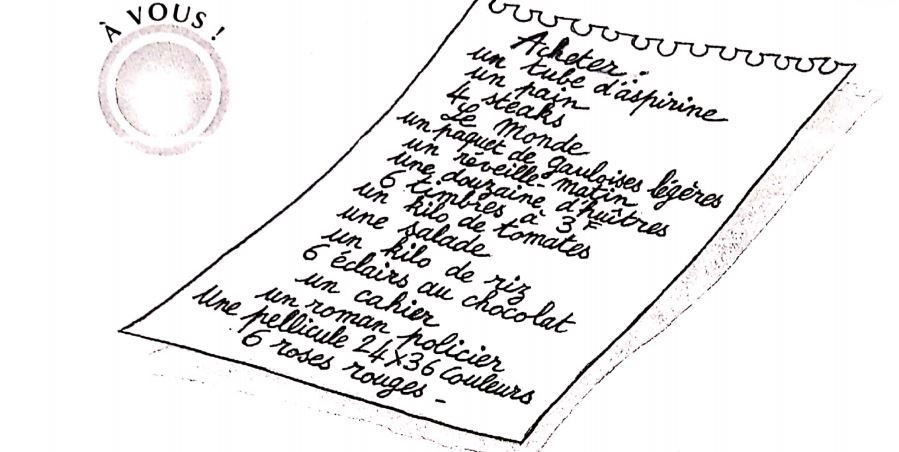 À VOUS !
Acheter :
un tube d'aspirine
un pain
4 steaks
Le Monde
un paquet de gauloises légères
un réveille-matin
une douzaine d'huîtres
6 timbres à 3 F
un kilo de tomates
une salade
un kilo de riz
6 éclairs au chocolat
un cahier
un roman policier
Une pellicule 24x36 Couleurs
6 roses rouges -